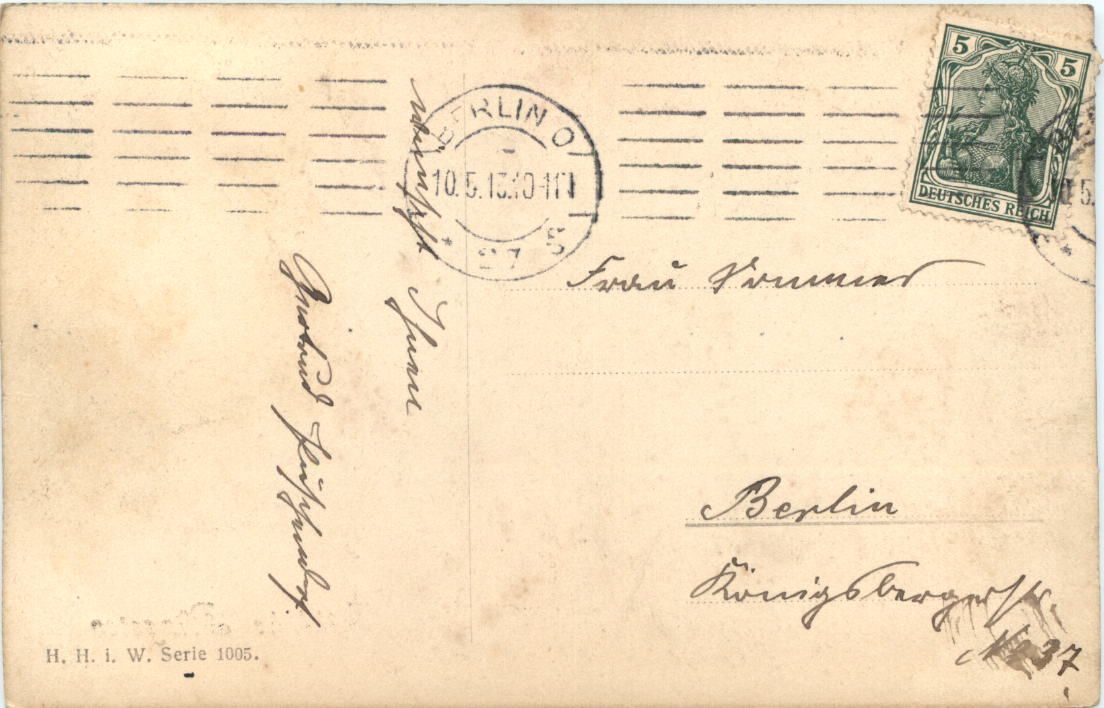 wünscht Ihnen
BERLIN O
10.5.13.10-11
27 S
5 5
DEUTSCHES REICH
Frau Sommer
Berlin
Königsbergerstr.
No 37
H. H. i. W. Serie 1005.